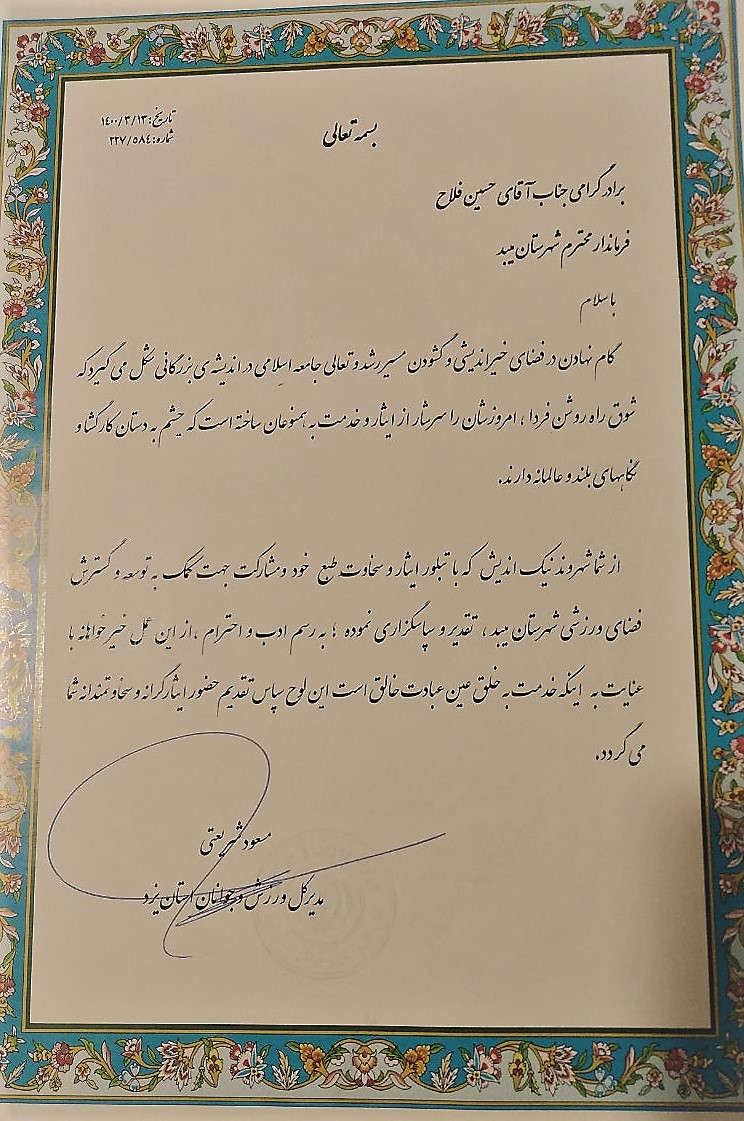 بسمه تعالی
تاریخ: ۱۴۰۰/۳/۱۳
شماره: ۲۲۷/۵۸۴
برادر گرامی جناب آقای حسین فلاح
فرماندار محترم شهرستان میبد
با سلام
گام نهادن در فضای خیراندیشی و گشودن مسیر رشد و تعالی جامعه اسلامی در اندیشه ی بزرگانی شکل می گیرد که
شوق راه روشن فردا ، امروزشان را سرشار از ایثار و خدمت به همنوعان ساخته است که چشم به دستان کارگشا و
نگاههای بلند و عالمانه دارند.
از شما شهروند نیک اندیش که با تبلور ایثار و سخاوت طبع خود و مشارکت جهت کمک به توسعه و گسترش
فضای ورزشی شهرستان میبد ، تقدیر و سپاسگزاری نموده ؛ به رسم ادب و احترام ، از این عمل خیرخواهانه با
عنایت به اینکه خدمت به خلق عین عبادت خالق است این لوح سپاس تقدیم حضور ایثارگرانه و سخاوتمندانه شما
می گردد.
مسعود شریعتی
مدیرکل ورزش و جوانان استان یزد